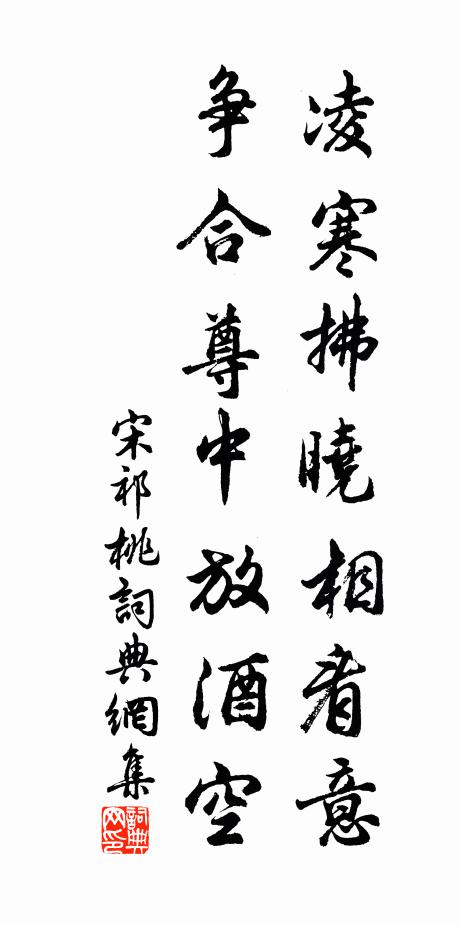 凌寒拂曉相看意
争合尊中放酒空
宋祁桃詞典網集
詞典网印